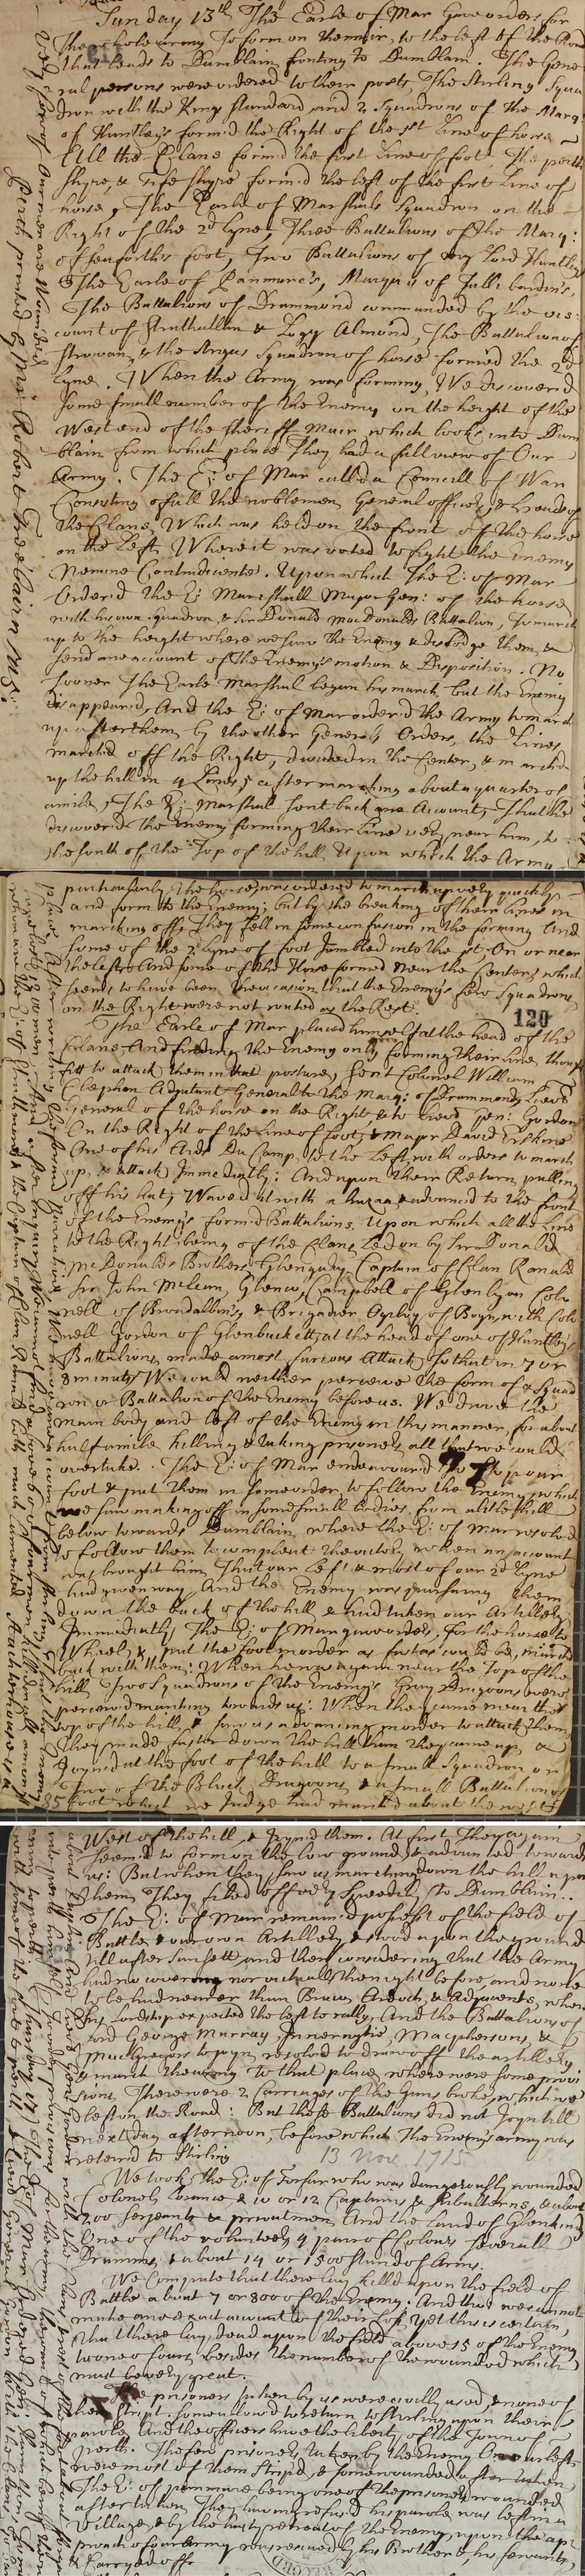 Sunday 13th The Earle of Mar Gave orders for
The whole army To form on the muir, to the left of the Road
that leads to Dumblain fronting to Dumblain. The Gene
ral persons were ordered to their posts, The Stirling Squa
dron with the King standard and 2 Squadrons of the Marq:
of Huntley's formed the Right of the 1st Line of horse
All the Clans formed the first Line of foot. The perth
shyre, & Fife shyre formed the left of the first Line of
horse, The Earle of Marshals Squadron on the
Right of the 2d Lyne, Three Battalions of the Marq:
of Seaforths foot, Two Battalions of my Lord Huntley
The Earle of Panmure's, Marquis of Tullibardin's,
The Battalions of Drummond commanded by the vis:
count of Strathallan & Logy Almond, The Battalion of
Strowan, & the Angus Squadron of horse formed the 2d
Lyne. When the Army was forming, We discovered
some small number of the Enemy on the height of the
West end of the sheriff Muir which looks into Dum
blain from which place They had a full view of Our
Army. The E: of Mar call'd a Councill of War
Consisting of all the noblemen General officers & heads of
the Clans, Which was held on the front off the horse
on the Left, Where it was voted to fight the Enemy
Nemine Contradicente. Upon which The E: of Mar
Ordered the E: Marishall Major Gen: of the horse
with his own Squadron, & Sir Donald MacDonalds Battalion, To march
up to the height where we saw the Enemy & dislodge them, &
send ane account of the Enemy's motion & Disposition. No
sooner The Earle Marshal began his march, but the Enemy
disappeared, And the E: of Mar ordered the Army to march
up after them, by the other Generals Orders, the Lines
marched off the Right, divided in the Center, & marched
up the hill in 4 Lines; after marching about a quarter of
a mile, The E: Marshall sent back ane Account, That he
discovered the Enemy forming their Line very near him, to
the south of the Top of the hill, Upon which the Army
very few of Ours were Wounded
Perth printed by Mr Robert Freebairn MS:
particularly the horse, was ordered to march up very quickly
and form to the Enemy; but by the breaking of their Lines in
marching off, They fell in some confusion in the forming And
some of the 2d Lyne of foot Jumbled into the 1st, On or near
the left, And some of the Horse formed near the Center, which
seems to have been the occasion, that the Enemy's few Squadrons
on the Right were not routed as the Rest.
120
The Earle of Mar placed himself at the head of the
Clans, And finding the Enemy only forming their Line, thought
fitt to attack them in that posture, sent Colonel William
Clephan Adjutant General to the Marq: of Drummond, Lieut
General of the horse on the Right, & to Lieut Gen: Gordon
On the Right of the Line of foot, & Major David Erskine
One of his Aids Du Camp, to the Left, with orders to march
up, & attack Immediatly: And upon their Return, pulling
off his hat, Waved it with a huzza, & advanced to the front
of the Enemy's formed Battalions. Upon which all the Line
to the Right, being of the Clans, Led on by Sir Donald
McDonalds Brothers, Glengary, Captain of Clan Ranald
Sir John Mclean, Glenco, Campbell of Glenlyon, Colo
nell of Broadalbin's, & Brigadier Ogilvy of Boyn, with Colo
nell Gordon of Glenbuckett, at the head of one of Huntley's
Battalions, made a most furious Attack, so that in 7 or
8 minuts We could neither perceive the form of a Squad
ron or Battalion of the Enemy before us. We drove the
main body and left of the Enemy in this manner, for about
half a mile, killing & taking prisoners all that we could
overtake. The E: of Mar endeavour'd to stop our
foot & put them in some order to follow the Enemy, which
we saw making off in some small bodies, from a litle hill
below towards Dumblain, where the E: of Mar resolved
to follow them to compleat the victory, when an account
was brought him, That our Left & most of our 2d Lyne
had given way And the Enemy was pursueing them
down the back of the hill & had taken our Artillery
Immediatly The E: of Mar gave orders, for the horse to
Wheel, & put the foot in order as fast as could be, march'd
back with them: When he was again near the Top of the
hill, Two Squadrons of the Enemy's Gray Dragoons were
perceived marching towards us: When they came near the
top of the hill, & saw us advancing in order to attack them
They made faster down the hill than they came up, &
Joyned at the foot of the hill to a small Squadron or
Two of the Black Dragoons, & a small Battalion of
foot which we Judge had marched about the west
West of the hill, & Joynd them. At first They again
seem'd to form on the low ground, & advanced towards
us: But when they saw us marching down the hill upon
them, They filed off very speedily to Dumblain.
The E: of Mar remained possest of the field of
Battle, & our own Artillery, & stood upon the ground
till after sunsett, and then considering that the Army
had no covering nor victualls the night before, and none
to be had nearer than Braco, Ardoch, & Adjacents, where
his Lordship expected the Left to rally, And the Battalions of
Lord George Murray, Innernytie, Macphersons, &
Mackgregors to joyn, resolved to draw off the artillery
& march the army to that place, where were some provi
sions, There were 2 Carriages of the Guns broke, which we
left on the Road: But these Battalions did not Joyn till
next day afternoon, before which The Enemy's army was
retired to Stirling
13 Nov. 1715
We took the E: of Forfar who was dangerously wounded
Colonel Lawrence & 10 or 12 Captains & subalterns, & about
200 serjeants & privatmen, And the Laird of Glenkindy
One of the volunteers, 4 pair of Colours, severall
Drumms, & about 14 or 1500 stand of Arms.
We Compute that there lay killd upon the field of
Battle about 7 or 800 of the Enemy: And tho we cannot
make ane exact account of their Loss, Yet this is certain,
That there lay dead upon the field above 15 of the Enemy
to one of ours, besides the number of the wounded which
must be very great.
The prisoners taken by us were civilly used, & none of
them stript, some allow'd to return to Stirling upon their
parole, And the officers have the liberty of the Town of
Perth. The few prisoners taken by the Enemy On our Left
were most of them stripd, & some wounded after taken
The E: of panmure being one of the prisoners wounded
after taken, They having refused his parole, was left in a
village, & by the hasty retreat of the Enemy, upon the ap
proach of our Army was rescued by his Brother & his servants
& Carryed off.